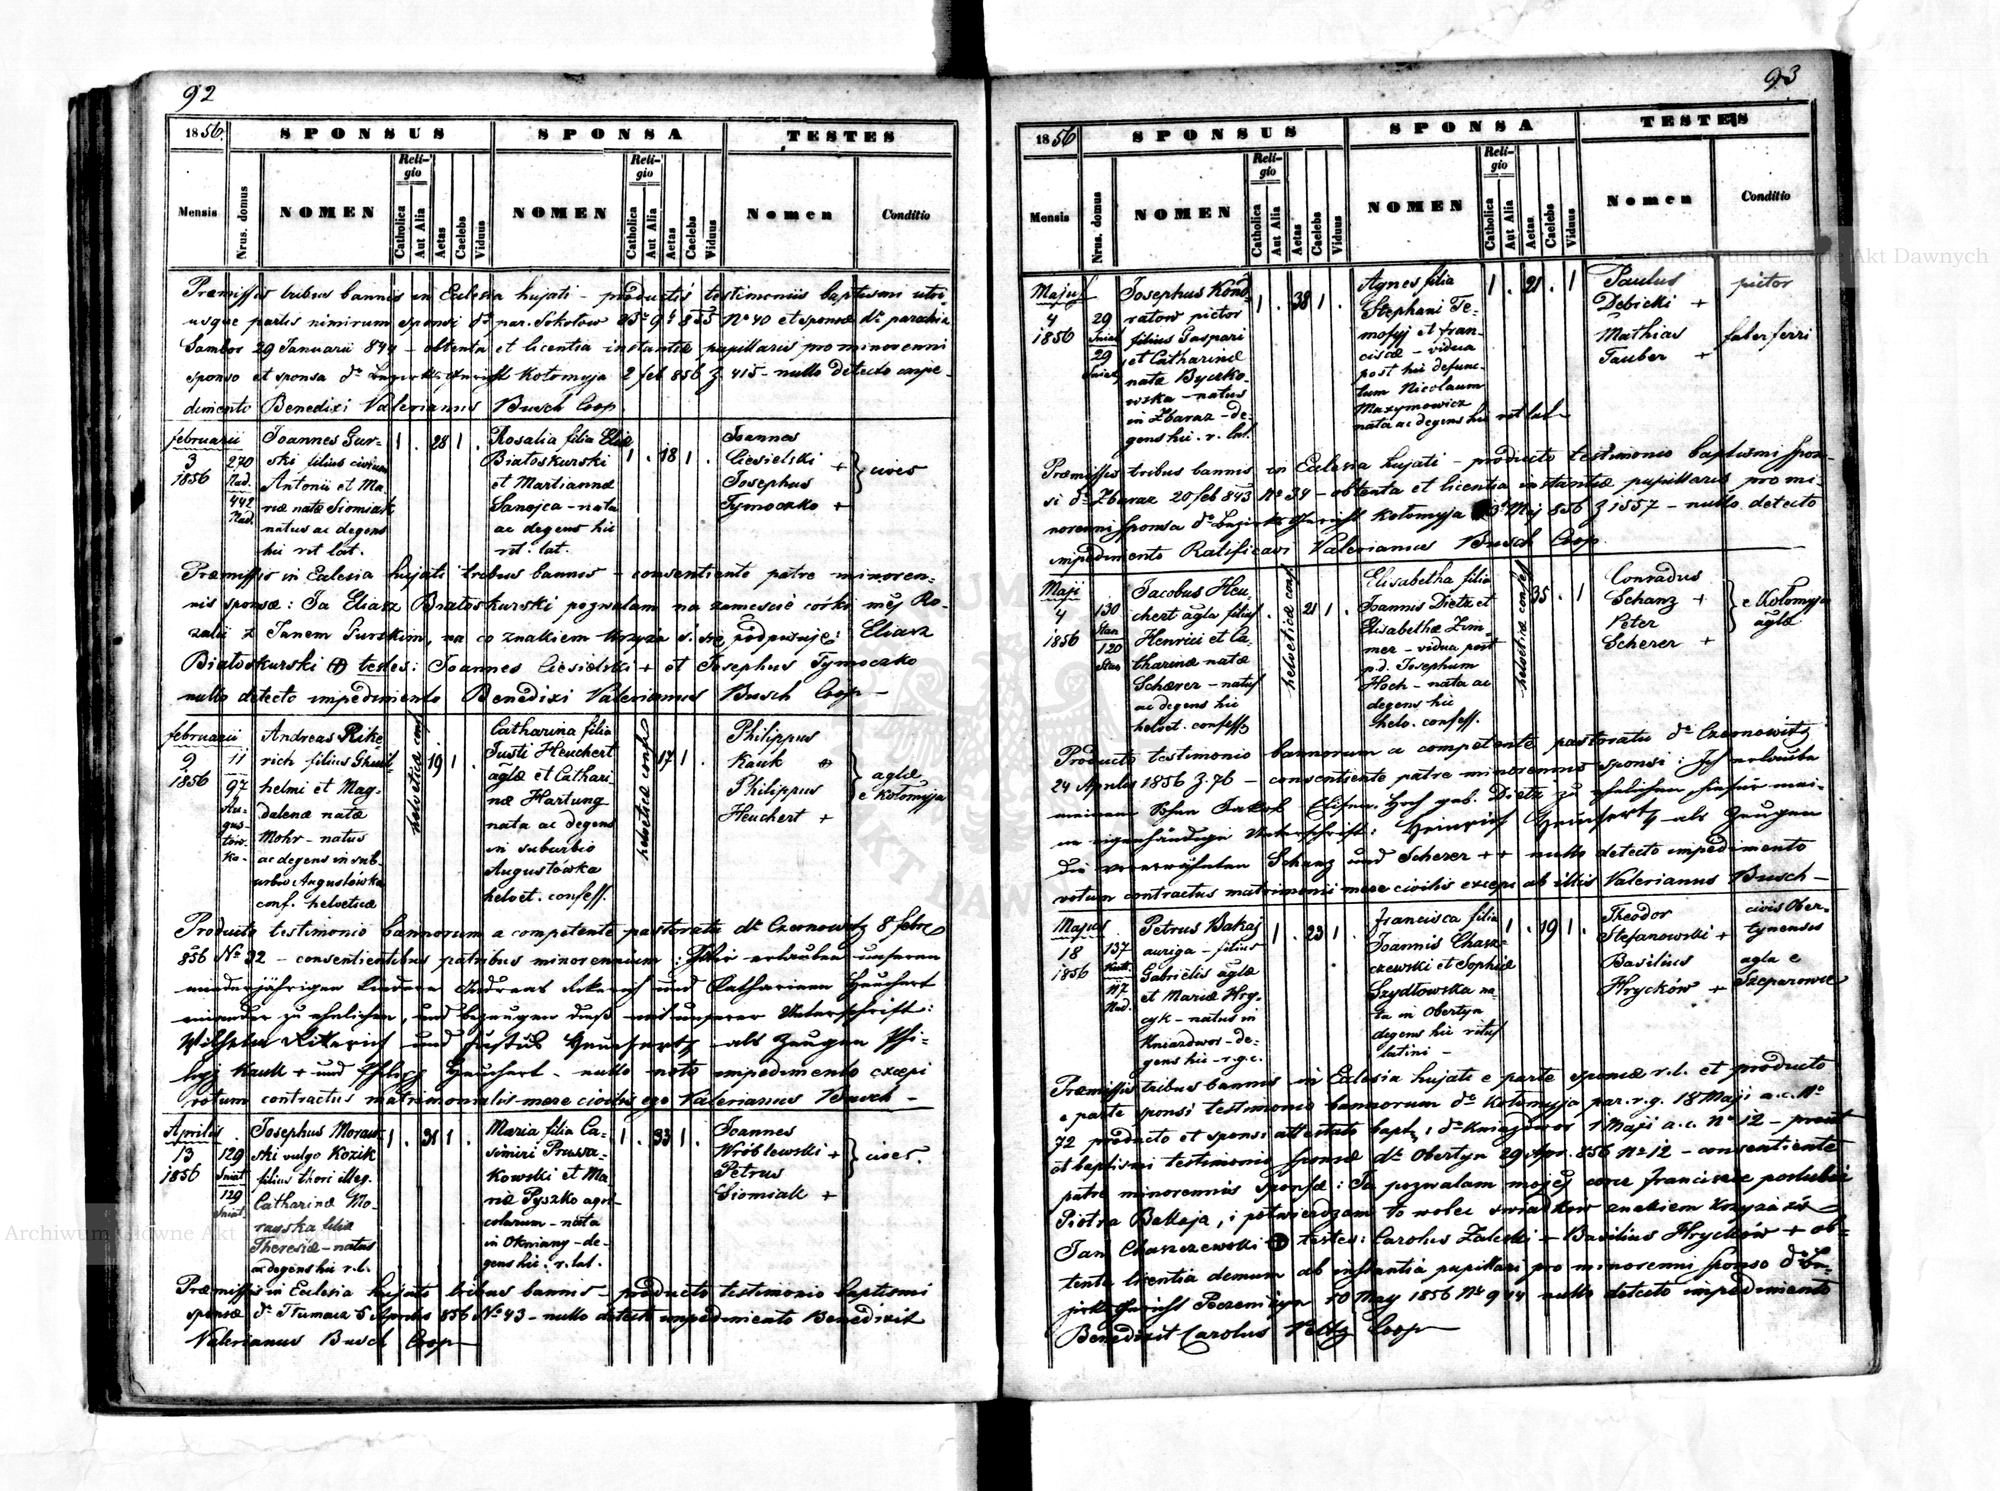 92
1856.
SPONSUS
SPONSA
TESTES
Mensis
Nrus. domus
NOMEN
Religio
Catholica
Aut Alia
Aetas
Caelebs
Viduus
NOMEN
Religio
Catholica
Aut Alia
Aetas
Caelebs
Viduus
Nomen
Conditio
Præmissis tribus bannis in Eclesia hujati – productis testimoniis baptismi utri-
usque partis nimirum sponsi dto par. Sokołow
Sambor 29 Januarii 844 – obtenta et licentia instantiæ pupillaris pro minorenni
sponso et sponsa Kołomyja 2 feb 856 Z. 415 – nullo detecto impe-
dimento Benedixi Valerianus Busch Coop.
februarii
3
1856
270
Nad.
442
Nad.
Joannes Gur-
ski filius civium
Antonii et Ma-
riæ natæ Siomiak
natus ac degens
hii rit lat.
1 . 28 1 .
Rosalia filia Eliæ
Białoskurski
et Mariannæ
Sanojca – nata
ac degens hii
rit. lat.
1 . 18 1 .
Joannes
Ciesielski +
Josephus
Tymoczko +
cives
Præmissis in Eclesia hujati tribus bannis – consentiente patre minoren-
nis sponsæ: Ja Eliasz Białoskurski pozwalam na zamęście córki mėj Ro-
zalii z Janem Gurskim, na co znakiem krzyża ś. się podpisuję: Eliasz
Białoskurski (+) testes: Joannes Ciesielski + et Josephus Tymoczko
nullo detecto impedimento Benedixi Valerianus Busch Coop –
februarii
9
1856
11
97
Au-
gus-
tów-
ka.
Andreas Rike
rich filius Guil-
helmi et Mag-
dalenæ natæ
Mohr – natus
ac degens in sub-
urbio Augustówka
conf. helveticæ
helveticæ conf.
19 1 .
Catharina filia
Justi Heuchert
aglæ et Cathari-
næ Hartung
nata ac degens
in suburbio
Augustówka
helvet. confess.
helveticæ confes
17 1 .
Philippus
Kauk +
Philippus
Heuchert +
aglæ
e Kołomyja
Producto testimonio bannorum a competente pastoratu dto Czernowitz 8 febr.
856 No 22 – consentientibus patribus minorennium: Wir erlauben unseren
minderjährigen Kindern Andreas Rikerich und Katharinna Heuchert
einander zu ehelichen, und bezeugen dieß mit unserer Unterschrift:
Wilhelm Rikerich und Justus Heuchert – als Zeugen Phi-
lipp Kauk + und Philipp Heuchert – nullo noto impedimento excepi
votum contractus matrimonialis mere civilis ego Valerianus Busch –
Aprilis
13
1856
129
Sniat.
129
Sniat.
Josephus Moraw-
ski vulgo Kozik
filius thori illeg.
Catharinæ Mo-
rawska filiæ
Theresiæ – natus
ac degens hii r.l.
1 . 31 1 .
Maria filia Ca-
simiri Prussa-
kowski et Ma-
riæ Pyszko agri-
colarum – nata
in Okniany – de-
gens hii. r. lat.
1 . 33 1 .
Joannes
Wróblewski +
Petrus
Siomiak +
cives.
Præmissis in Eclesia hujati tribus bannis – producto testimonio baptismi
sponsæ dto Tłumacz 5 Aprilis 856 No 43 – nullo detecto impedimento Benedixit
Valerianus Busch Coop –
93
1856
SPONSUS
SPONSA
TESTES
Mensis
Nrus. domus
NOMEN
Religio
Catholica
Aut Alia
Aetas
Caelebs
Viduus
NOMEN
Religio
Catholica
Aut Alia
Aetas
Caelebs
Viduus
Nomen
Conditio
Majus
4
1856
29
Sniat
29
Sniat
Josephus Kond-
ratow pictor
filius Gaspari
et Catharinæ
natæ Byczko-
wska – natus
in Zbaraz – de-
gens hii. r. lat.
1 . 38 1 .
Agnes filia
Stephani Te-
mofyj et fran-
ciscæ – vidua
post hii defunc-
tum Nicolaum
Maxymowicz
nata ac degens hii rit lat –
1 . 21 . 1
Paulus
Debicki +
Mathias
Tauber +
pictor
faber ferri
Præmissis tribus bannis in Eclesia hujati – producto testimonio baptismi spon-
si dto Zbaraz 20 feb 843 No 34 – obtenta et licentia instantiæ pupillaris pro mi-
norenni sponsa dto Bezirks Gericht Kołomyja 3 Maj 856 Z 1557 – nullo detecto
impedimento Ratificavi Valerianus Busch Coop.
Maji
4
1856
130
Stan
120
Stan
Jacobus Heu-
chert agla filius
Henrici et Ca-
tharinæ natæ
Scherer – natus
ac degens hii
helvet. confess.
helveticæ conf.
21 1 .
Elisabetha filia
Joannis Dietz et
Elisabethæ Zim-
mer – vidua post
p.d. Josephum
Hoch – nata ac
degens hii
helv. confess.
helveticæ confess
35 . 1
Conradus
Schanz +
Peter
Scherer +
e Kołomyja
aglæ
Producto testimonio bannorum a competente pastoratu dto Czernowitz
24 Aprilis 1856 Z. 76 – consentiente patre minorennis sponsi: Ich erlaube
meinem Sohn Jakob Elisa. Hoch geb. Dietz zu ehelichen, hiefür mei-
ne eigenhändige Unterschrift: Heinrich Heuchert – als Zeugen
die vorerwähnten Schanz und Scherer ++ nullo detecto impedimento
votum contractus matrimonii mere civilis excepi ab illis Valerianus Busch –
Majus
18
1856
137
117
Nad.
Petrus Bakaj
auriga – filius
Gabrielis aglæ
et Mariæ Hry-
cyk – natus in
Kniazdwor – de-
gens hii – r.g.c.
1 . 23 1 .
francisca filia
Joannis Chasz-
czewski et Sophiæ
Szydłowska na-
ta in Obertyn
degens hii ritus
latini –
1 . 19 1 .
Theodor
Stefanowski +
Basilius
Hrycków +
civis Ober-
tynensis
agla e
Szeparowce
Præmissis tribus bannis in Eclesia hujati e parte sponsæ r.l. et producto
e parte sponsi testimonio bannorum dto Kołomyja par. r.g. 18 Maji a.c. No
72 producto et sponsi attestato bapt: dto Kniazdwor 1 Maji a.c. No 12 – prout
et baptismi testimonio sponsæ dto Obertyn 29 Apr. 856 No 12 – consentiente
patre minorennis sponsæ: Ja pozwalam mojėj corce franciszce poślubić
Piotra Bakaja, i potwierdzam to wobec swiadków znakiem krzyża śś
Jan Chaszczewski (+) testes: Carolus Zaleski + Basilius Hryckow + ob-
tenta licentia demum ab instantia pupillari pro minorenni sponso dto Be-
zirks Gericht Peczenizyn 10 May 1856 No 914 nullo detecto impedimento
Benedixit Carolus Coop –
Archiwum Główne Akt Dawnych
Archiwum Główne Akt Dawnych